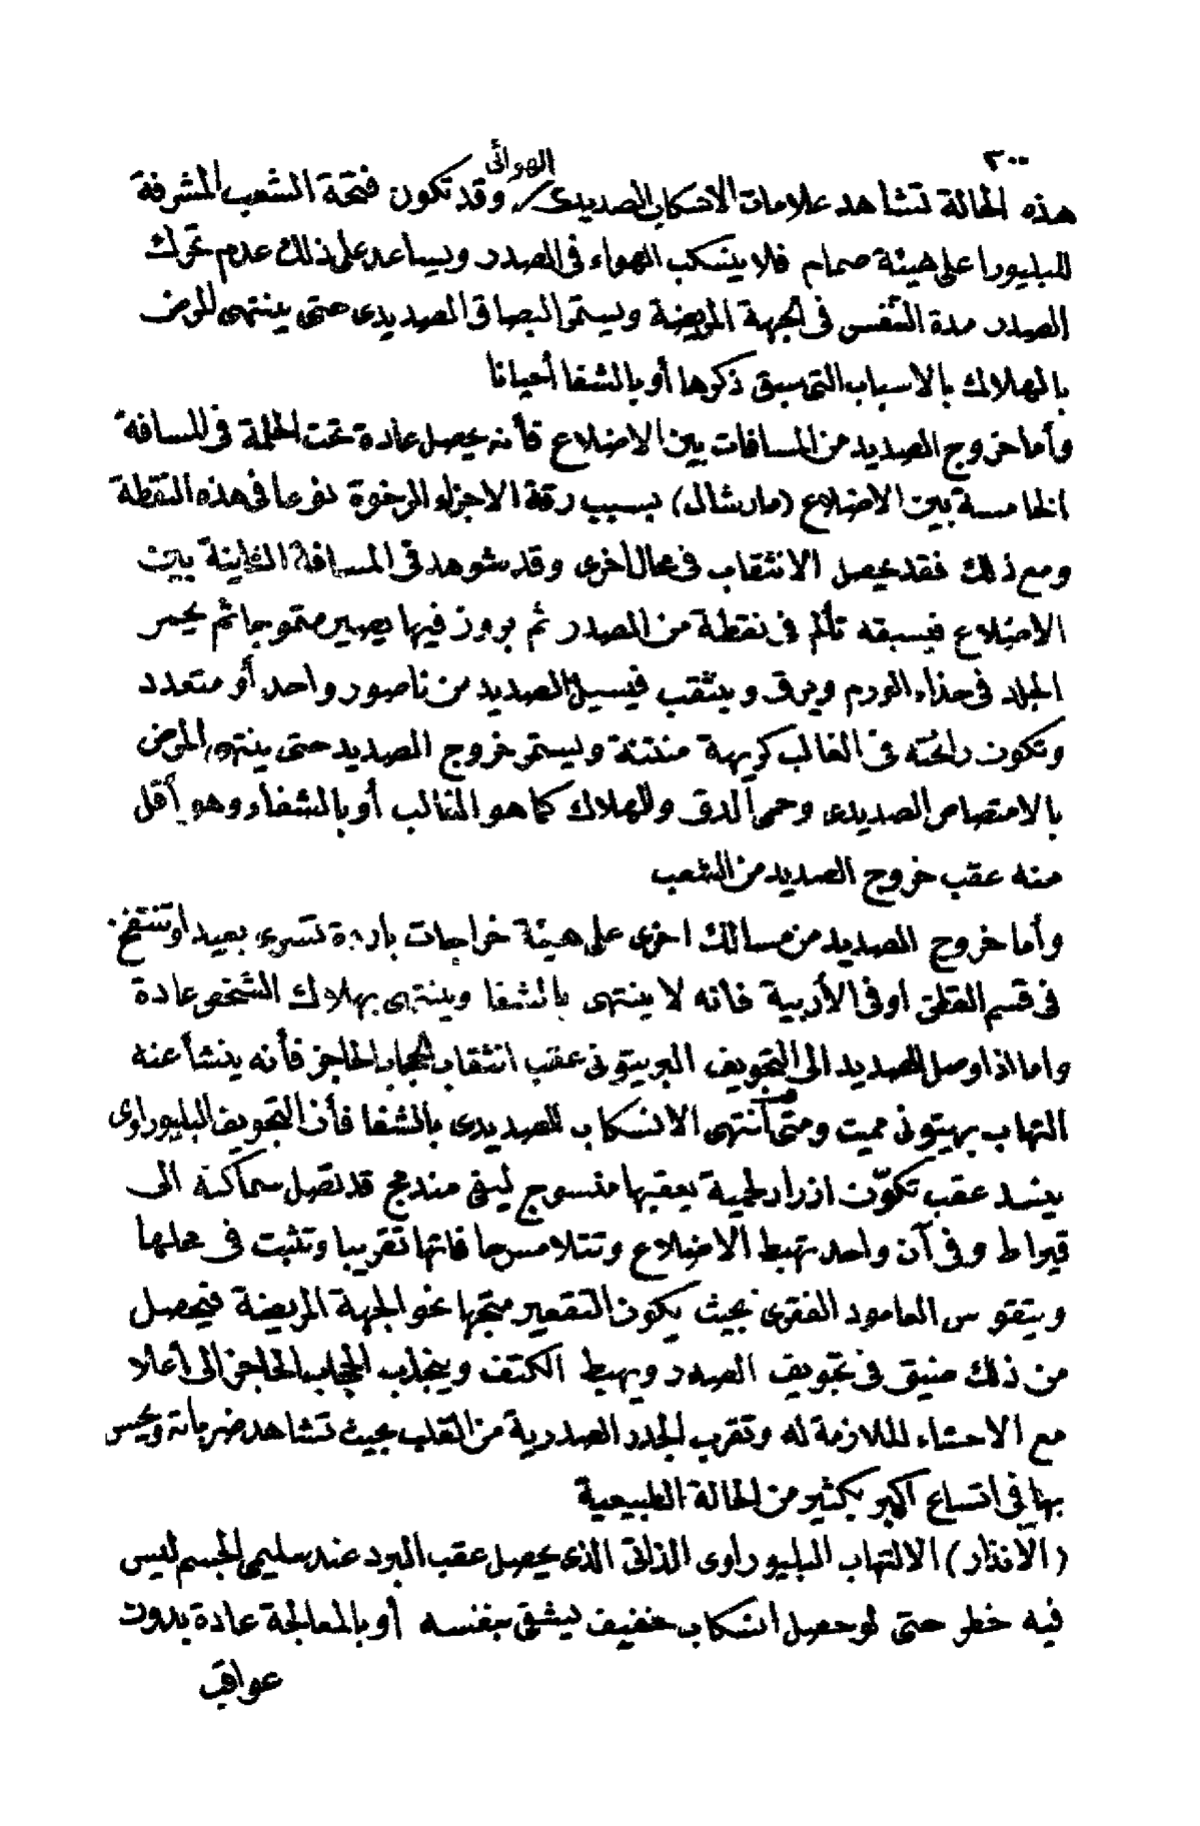 ٣٠٠
هذه الحالة تشاهد علامات الانسكاب الصديدى الهوائى وقد تكون فتحة الشعب المشرفة
للبليورا على هيئة صمام فلا ينسكب الهواء فى الصدر ويساعد على ذلك عدم تحرك
الصدر مدة التنفس فى الجهة المريضة ويستمر البصاق الصديدى حتى ينتهى المرض
بالهلاك بالاسباب التى سبق ذكرها أو بالشفا أحيانا
وأما خروج الصديد من المسافات بين الاضلاع فأنه يحصل عادة تحت الحلمة فى المسافة
الخامسة بين الاضلاع (مارشال) بسبب رقة الاجزاء الرخوة نوعا فى هذه النقطة
ومع ذلك فقد يحصل الانثقاب فى محال أخرى وقد شوهد فى المسافة الثانية بين
الاضلاع فيسبقه تألم فى نقطة من الصدر ثم بروز فيها يصير متموجا ثم يحمر
الجلد فى حذاء الورم ويرق وينثقب فيسيل الصديد من ناصور واحد أو متعدد
وتكون رائحته فى الغالب كريهة منتنة ويستمر خروج الصديد حتى ينتهى المرض
بالامتصاص الصديدى وحمى الدق والهلاك كما هو الغالب أو بالشفاء وهو أقل
منه عقب خروج الصديد من الشعب
وأما خروج الصديد من مسالك اخرى على هيئة خراجات باردة تسرى بعيدا وتنتفخ
فى قسم القطن او فى الأربية فانه لا ينتهى بالشفا وينتهى بهلاك الشخص عادة
واما اذا وصل الصديد الى التجويف البريتونى عقب انثقاب الحجاب الحاجز فأنه ينشأ عنه
التهاب بريتونى مميت ومتى انتهى الانسكاب الصديدى بالشفا فأن التجويف البليوراوى
ينسد عقب تكوّن ازرار لحمية يعقبها منسوج ليفى مندمج قد تصل سماكته الى
قيراط وفى آن واحد تهبط الاضلاع وتتلامس حافاتها تقريبا وتثبت فى محلها
ويتقوس العامود الفقرى بحيث يكون التقعير متجها نحو الجهة المريضة فيحصل
من ذلك ضيق فى تجويف الصدر ويهبط الكتف وينجذب الحجاب الحاجز الى أعلا
مع الاحشاء الملازمة له وتقرب الجدر الصدرية من القلب بحيث تشاهد ضرباته ويحس
بها فى اتساع اكبر بكثير من الحالة الطبيعية
(الانذار) الالتهاب البليوراوى الذاتى الذى يحصل عقب البرد عند سليمى الجسم ليس
فيه خطر حتى لو حصل انسكاب خفيف ليشفى بنفسه أو بالمعالجة عادة بدون
عواقب